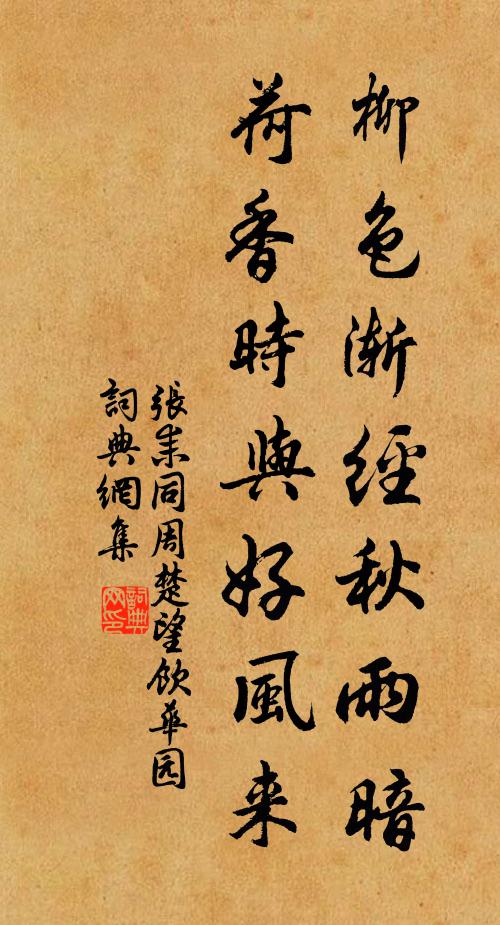 柳色渐經秋雨暗
荷香時與好風来
張耒同周楚望飲華园
詞典網集
詞典
网印